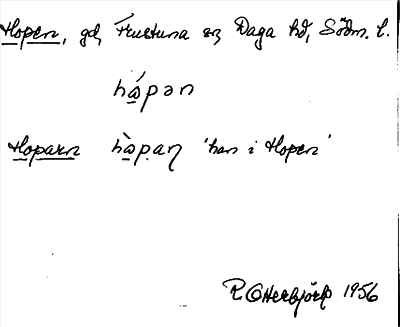 Hopen, gd, Frustuna sn Daga hd, Södm. l.
hǻpən
Hoparn hå̀paṇ 'han i Hopen'
R. Otterbjörk 1956